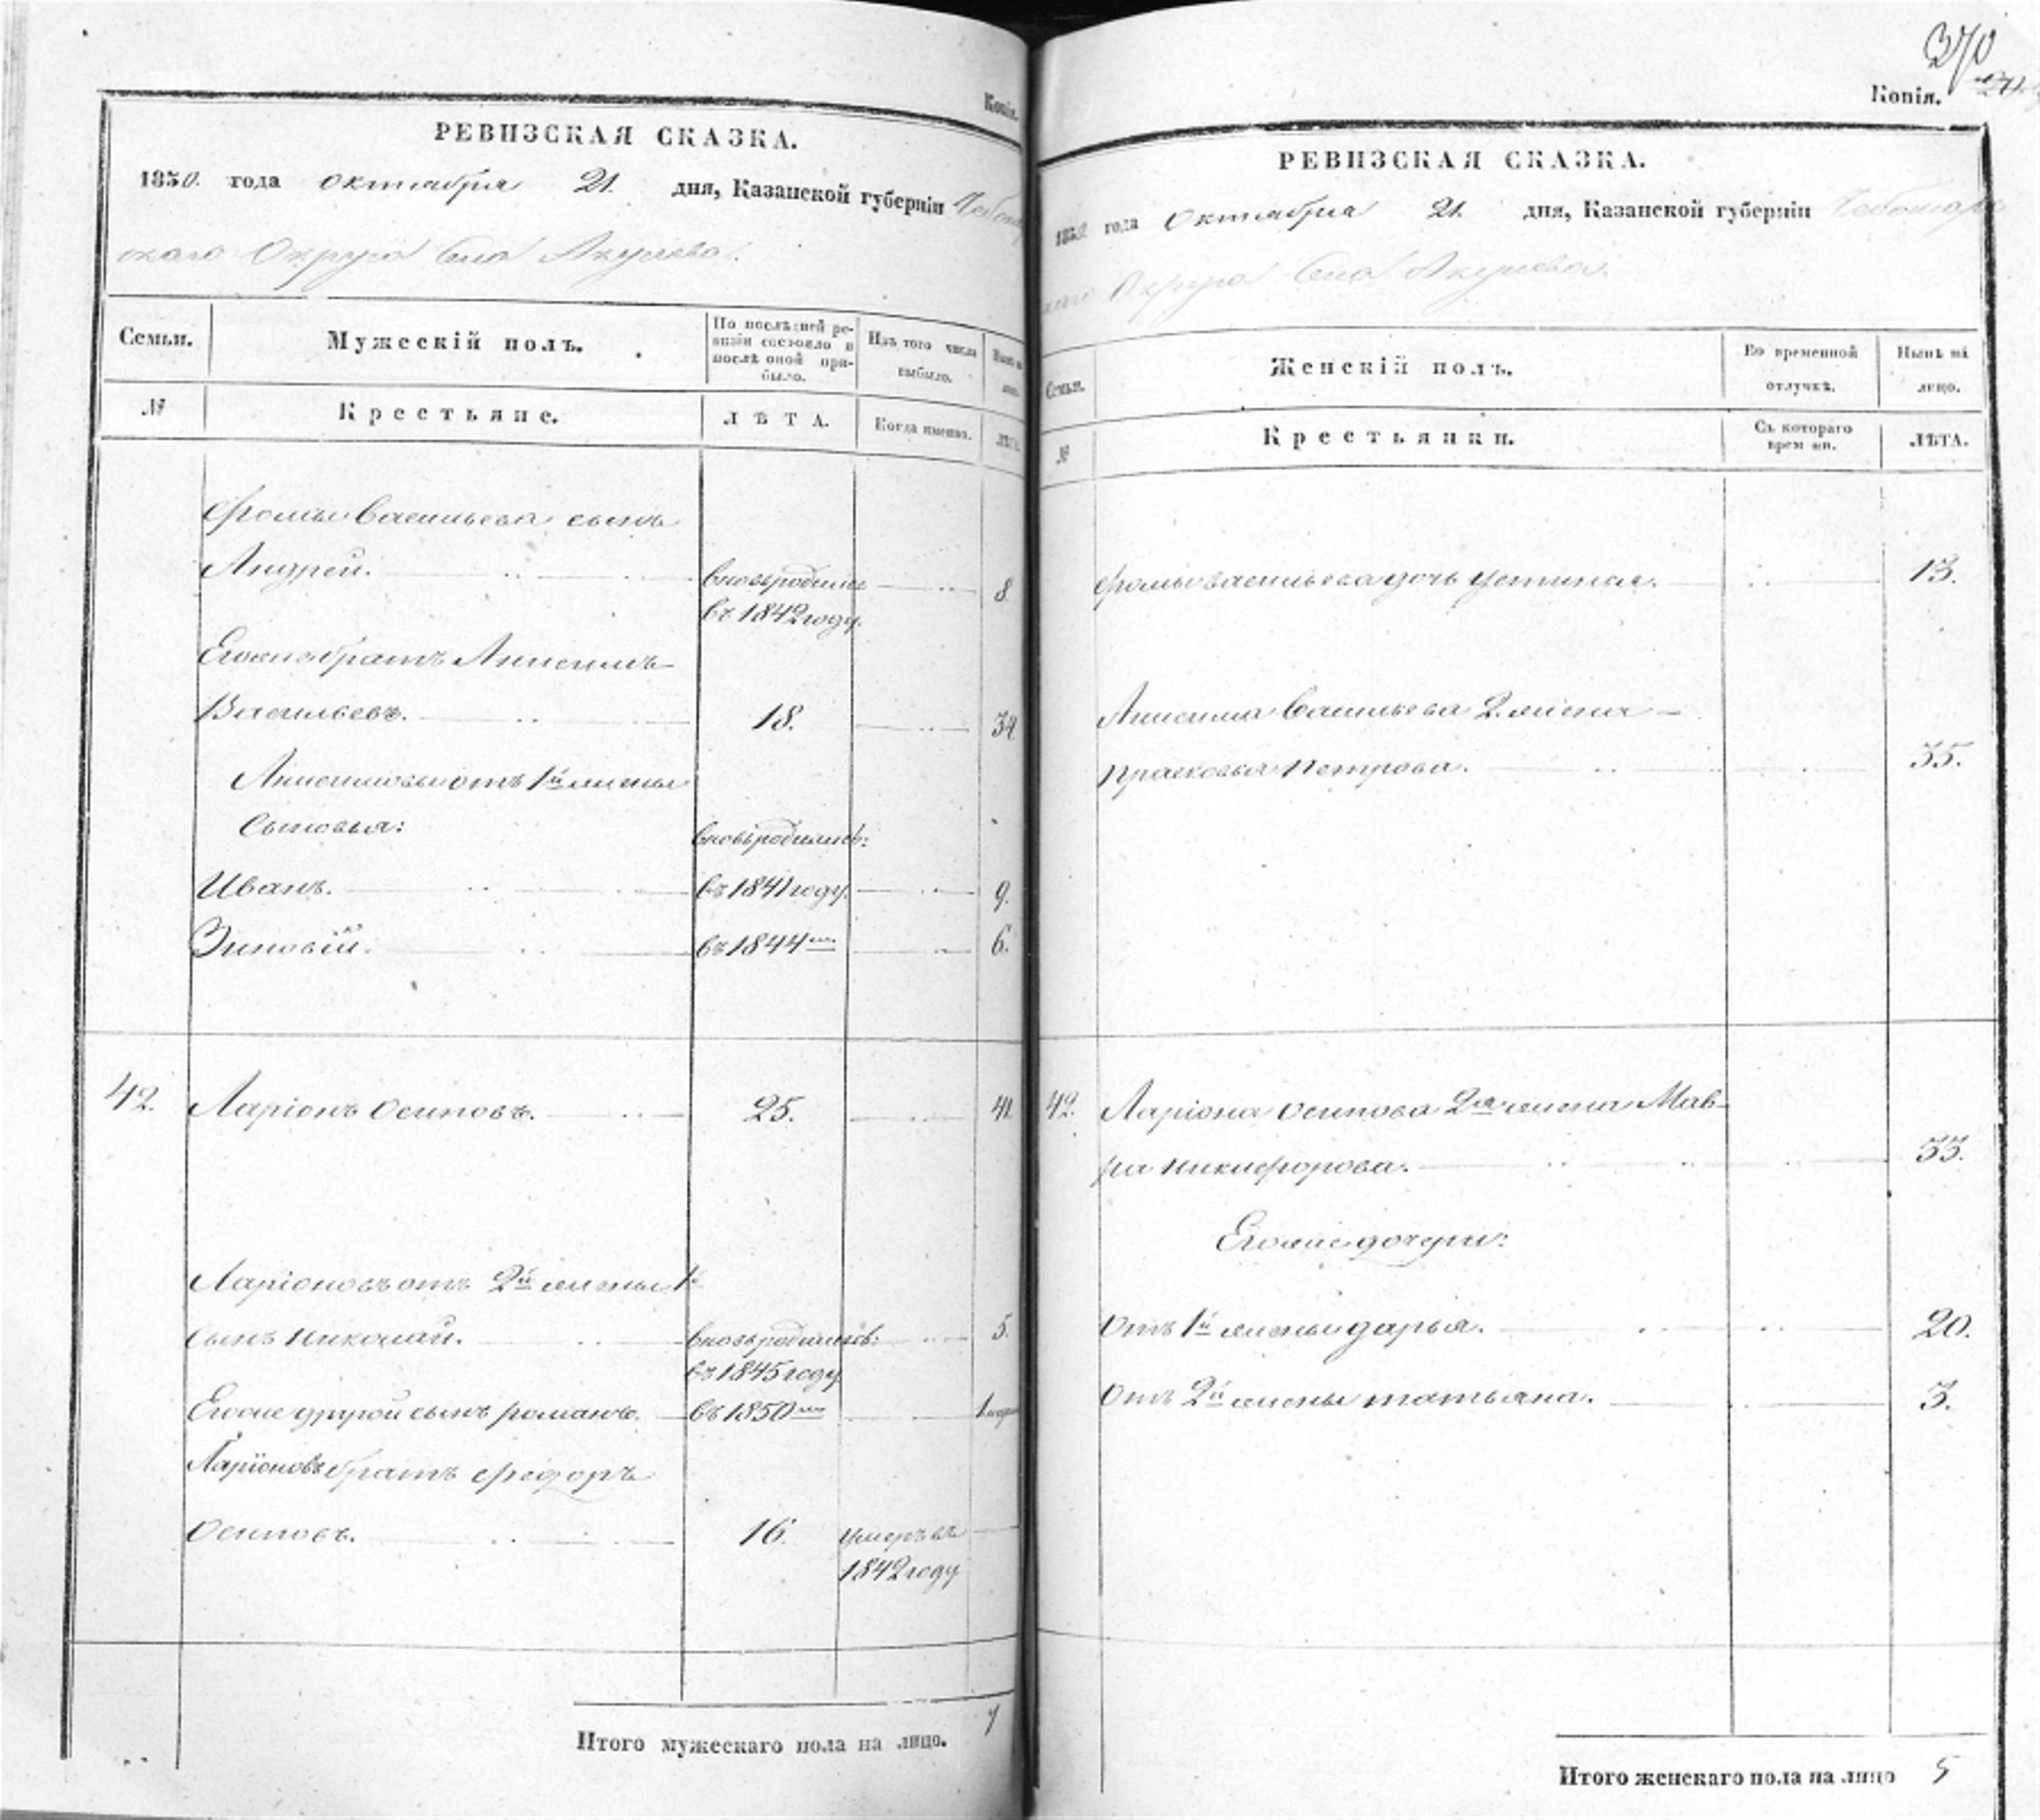 Копія.
РЕВИЗСКАЯ СКАЗКА.
1850. года октября 21. дня, Казанской губерніи Чебоксар
скаго Округа Села Акулева.
Семьи.
Мужескій полъ.
По послѣдней ре-
визіи состояло и
послѣ оной при-
было.
Изъ того числа
выбыло.
Нынѣ на
лицо.
№
Крестьяне.
ЛѢТА.
Когда именно.
ЛѢТА.
Фомы Васильева сынъ
Андрей. вновьродился 8.
въ 1842 году.
Егоже братъ Анисимъ
Васильевъ. 18. 34.
Анисимовы отъ 1й жены
Сыновья: вновьродились:
Иванъ. въ 1841 году. 9.
Зиновій. въ 1844мъ 6.
42. Ларіонъ Осиповъ. 25. 41.
Ларіоновъ отъ 2й жены 1й
сынъ Николай. вновьродились: 5.
въ 1845 году
Егоже другой сынъ романъ. въ 1850мъ
Ларіоновъ братъ Федоръ
Осиповъ. 16. умеръ въ
1842 году
Итого мужескаго пола на лицо. 7
370
Копія.
РЕВИЗСКАЯ СКАЗКА.
1850 года Октября 21. дня, Казанской губерніи Чебоксар
скаго Округа Села Акулева.
Семьи.
Женскій полъ.
Во временной
отлучкѣ.
Нынѣ на
лицо.
№
Крестьянки.
Съ котораго
времени.
ЛѢТА.
Фомы васильева дочь устинья. 13.
Анисима Васильева 2. жена
прасковья Петрова. 35.
42. Ларіона Осипова 2я жена Мав-
ра никифорова. 33.
Егоже дочери:
Отъ 1й жены дарья. 20.
Отъ 2й жены татьяна. 3.
Итого женскаго пола на лицо 5